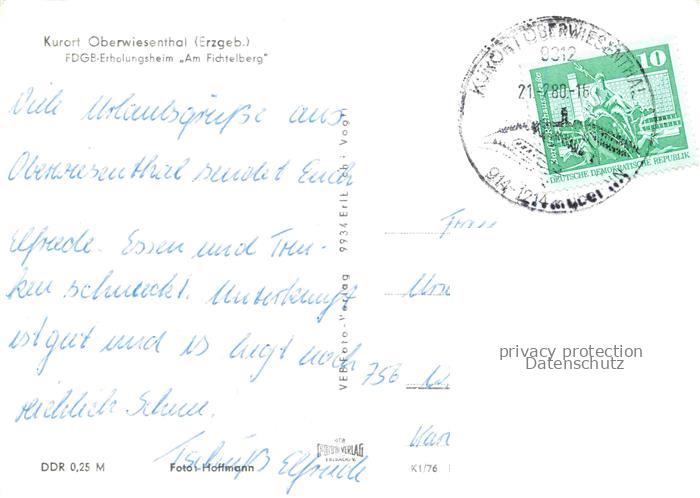 Kurort Oberwiesenthal (Erzgeb.)
FDGB-Erholungsheim „Am Fichtelberg"
Viele Urlaubsgrüße aus
Oberwiesenthal sendet Euch
Elfriede. Essen und Trin-
ken schmeckt. Unterkunft
ist gut und es liegt noch
reichlich Schnee.
Tschüß Elfriede
DDR 0,25 M
Foto: Hoffmann
VEB Foto-Verlag 9934 Erlbach i. Vogtl
VEB
FOTO-VERLAG
ERLBACH
K1/76
KURORT OBERWIESENTHAL
9312
80-16
914-1214 m über
10
DEUTSCHE DEMOKRATISCHE REPUBLIK
756
privacy protection
Datenschutz